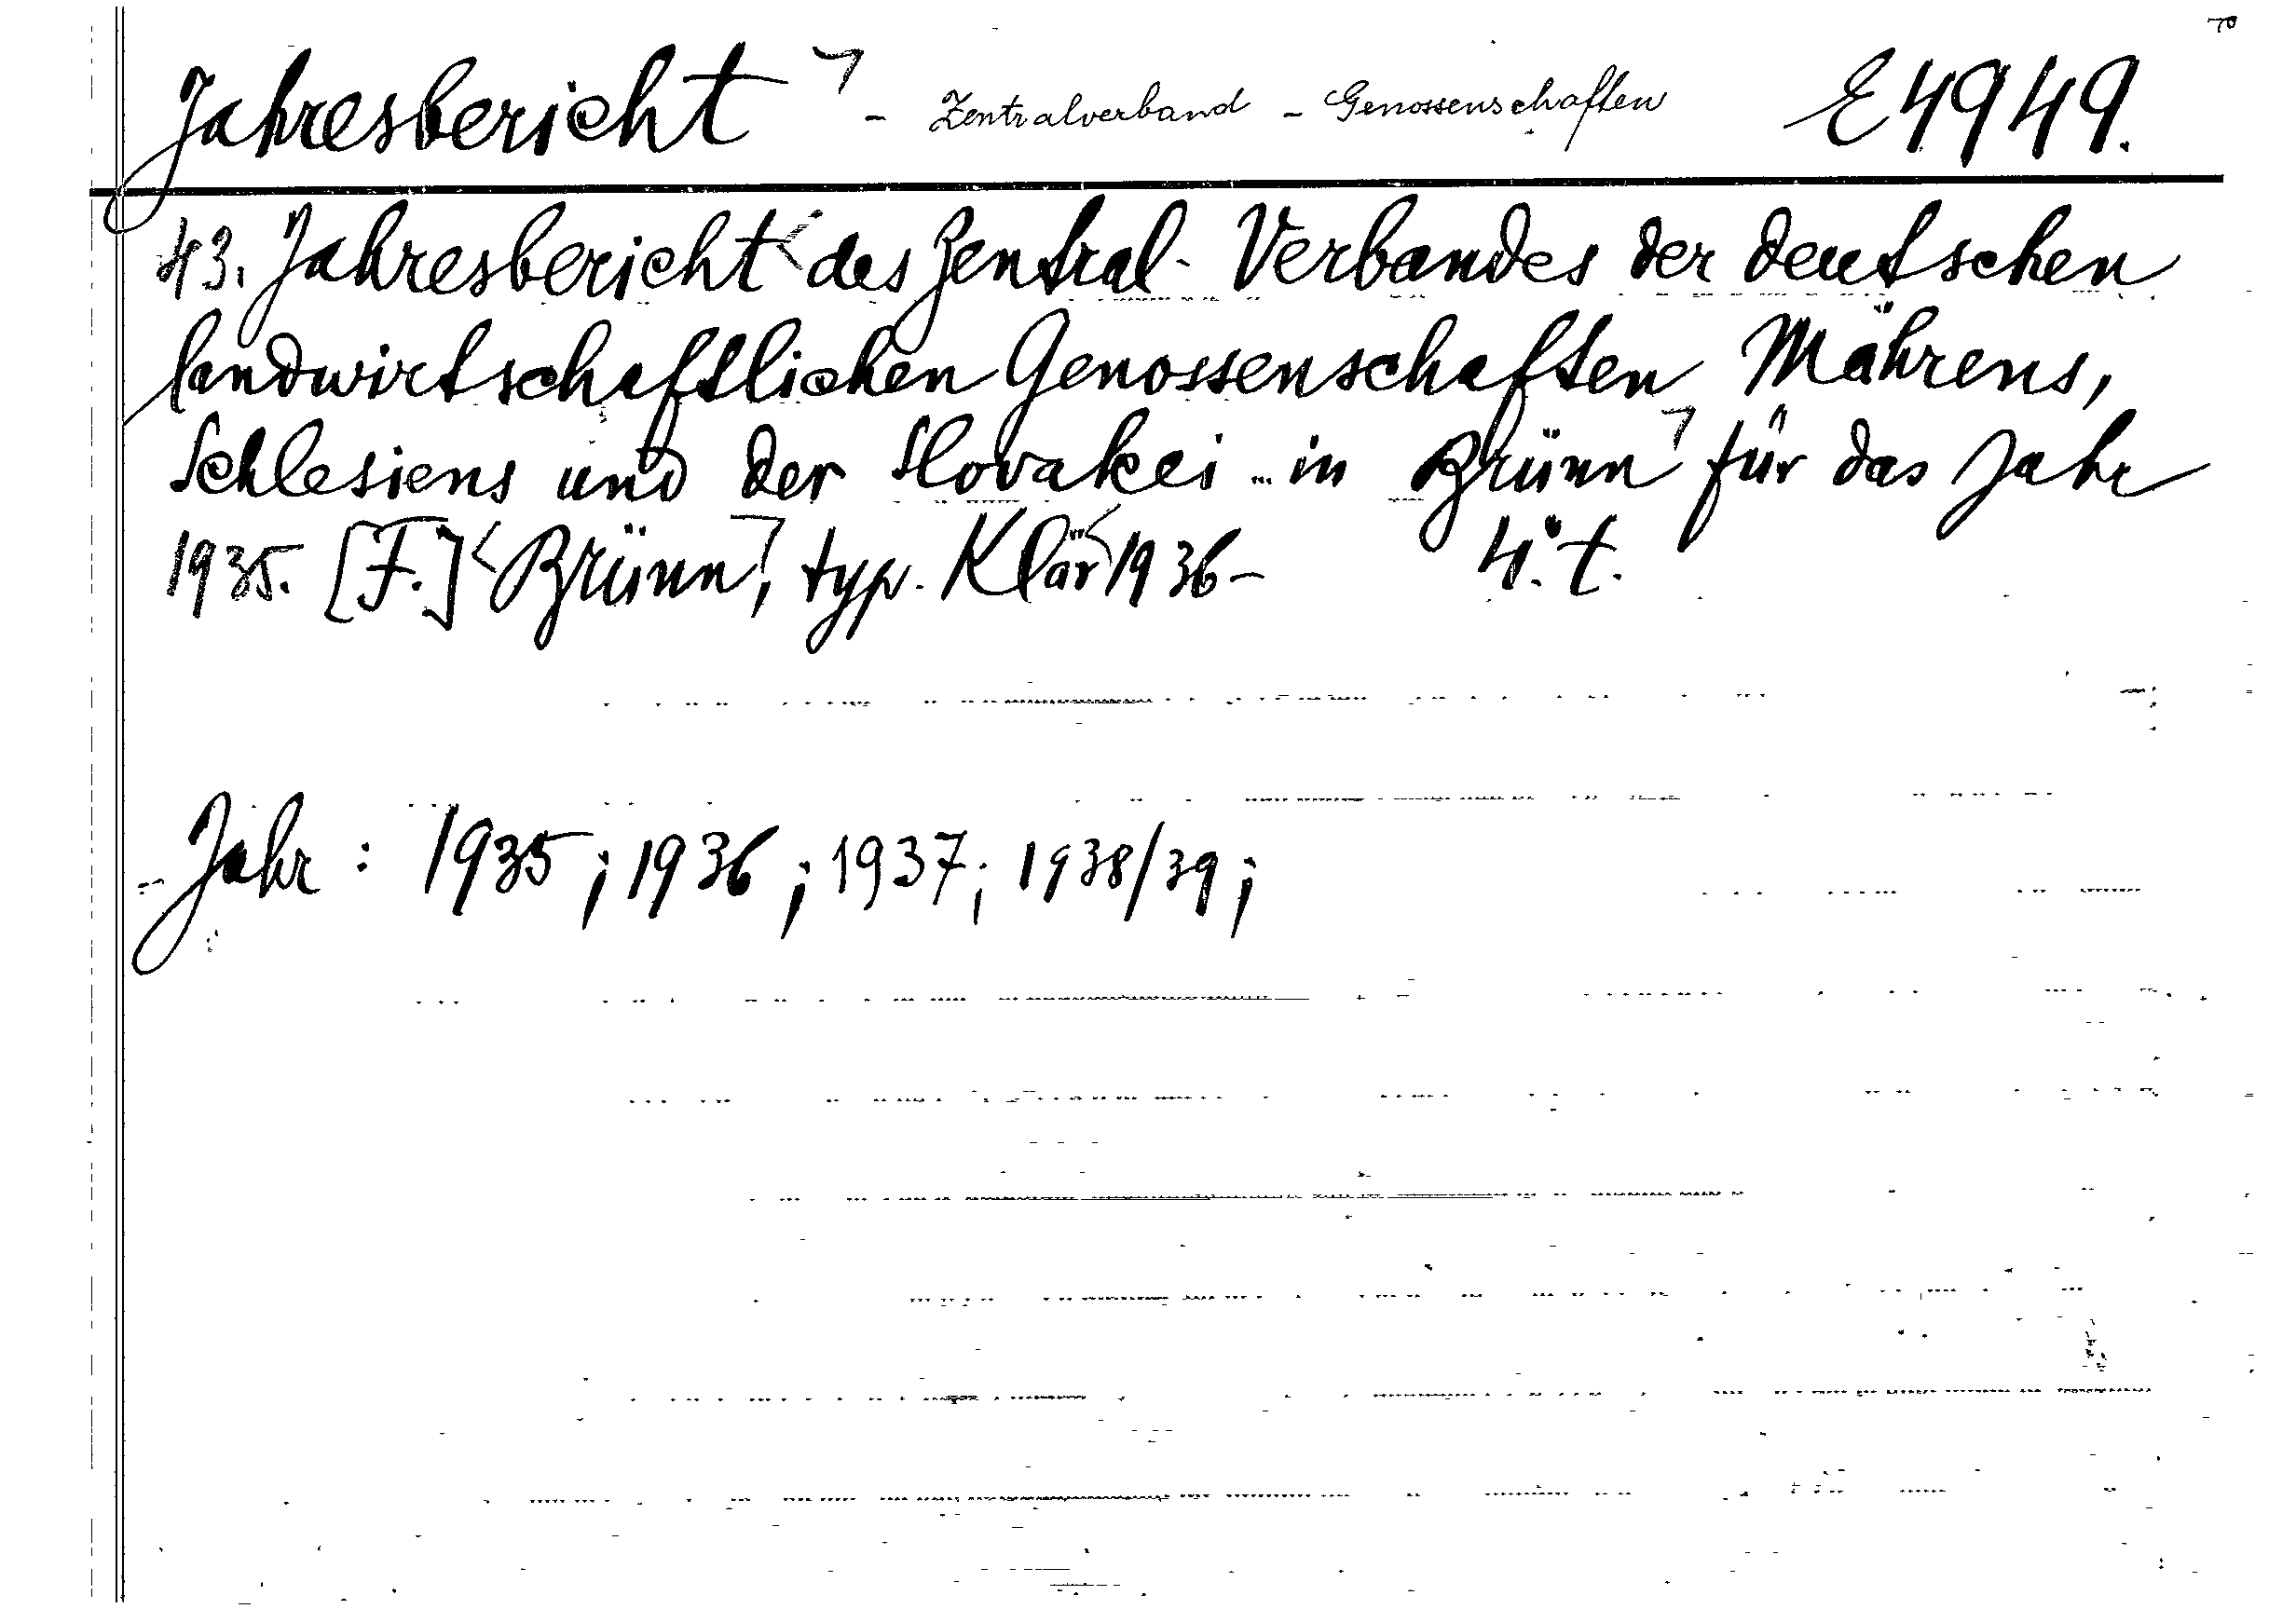 Jahresbericht - Zentralverband - Genossenschaften E 4949.
43. Jahresbericht des Zentral-Verbandes der deutschen
landwirtschaftlichen Genossenschaften Mährens,
Schlesiens und der Slovakei in Brünn für das Jahr
1935. [F.] Brünn, typ. Klär 1936- 4°. t.
Jahr: 1935; 1936; 1937; 1938/39;